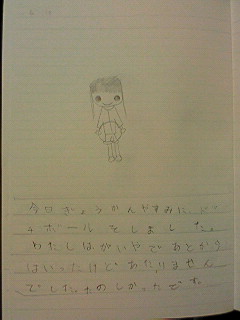 今日ぎょうかんやすみに ドッ
チボールをしました。
わたしはがいやであとから
はいったけどあたりません
でしたたのしかったです。